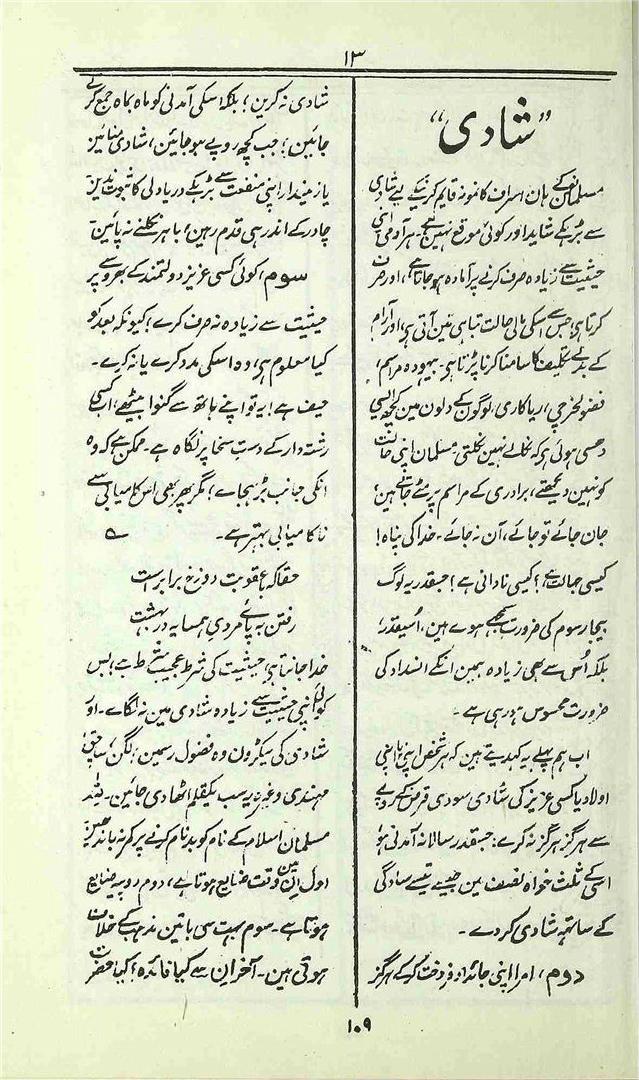 ۱۳
”شادی“
مسلمانوں کے ہان، اسراف کا نمونہ قایم کرنیکے لیے شادی
سے بڑہکے شاید اور کوئی موقع نہین ہے۔ ہر آدمی اپنی
حیثیت سے زیادہ صرف کرنے پر آمادہ ہو جاتا ہے، اور صرف
کرتا ہی، جس سے اسکی مالی حالت تباہی مین آتی ہی، اور آرام
کے بدلے تکلیف کا سامنا کرنا پڑتا ہی۔ بیہودہ مراسم،
فضولخرچی، ریاکاری، لوگون کے دلون مین کچھ ایسی
دھسی ہوئی ہی کہ نکالے نہین نکلتی۔ مسلمان اپنی حالت
کو نہین دیکھتے، برادری کے مراسم پر مٹے جاتے ہین؛
جان جائے تو جائے، آن نہ جائے۔ خدا کی پناہ!
کیسی جہالت ہے؟ کیسی نادانی ہے؟ جسقدر یہ لوگ
بیجا رسوم کی ضرورت سمجھے ہوے ہین، اُسیقدر؛
بلکہ اُس سے بھی زیادہ ہمین انکے انسداد کی
ضرورت محسوس ہو رہی ہے۔
اب ہم پہلے یہ کہدیتے ہین کہ ہر شخص اپنی یا اپنی
اولاد یا کسی عزیز کی شادی سودی قرض کے روپے
سے ہرگز ہرگز نہ کرے؛ جسقدر سالانہ آمدنی ہو
اُسی کے ثلث خواہ نصف مین جیسے تیسے سادگی
کے ساتھ شادی کر دے۔
دوم، امرا اپنی جائداد فروخت کر کے ہرگز
شادی نہ کرین؛ بلکہ اسکی آمدنی کو ماہ بماہ جمع کرتے
جائین؛ جب کچھ روپے ہو جائین، شادی منائین
یا زمیندار اپنی منفعت سے بڑہکے دریا دلی کا ثبوت ندین
چادر کے اندر ہی قدم رہین؛ باہر نکلنے نہ پائین۔
سوم، کوئی کسی عزیز دولتمند کے بھروسے پر
حیثیت سے زیادہ نہ صرف کرے؛ کیونکہ بعد کو
کیا معلوم ہی، وہ اسکی مدد کرے یا نہ کرے۔
حیف ہے! یہ تو اپنے ہاتھ سے گنوا بیٹھے، اب کسی
رشتہ دار کے دست سخا پر نگاہ ہے۔ ممکن ہے کہ وہ
انکی جانب بڑہجاے؛ مگر پھر بھی اس کامیابی سے
ناکامیابی بہتر ہے۔
حقا کہ با عقوبت دوزخ برابر است
رفتن بہ پائے مردیِ ہمسایہ در بہشت
خدا جانتا ہی، حیثیت کی شرط عجیب شے ہے؛ بس
کوئی اپنی حیثیت سے زیادہ شادی مین نہ لگائے۔ اور
شادی کی سیکڑون وہ فضول رسمین؛ لگن، ساچق،
مہندی وغیرہ یہ سب یکقلم اٹھا دی جائین۔
مسلمان اسلام کے نام کو بدنام کرنے پر کمر نہ باندھین
اول ان مین وقت ضایع ہوتا ہے، دوم روپیہ ضایع
ہوتا ہے۔ سوم بہت سی باتین مذہب کے خلاف
ہوتی ہین۔ آخر ان سے کیا فائدہ؟ کیا حضرت
۱۰۹